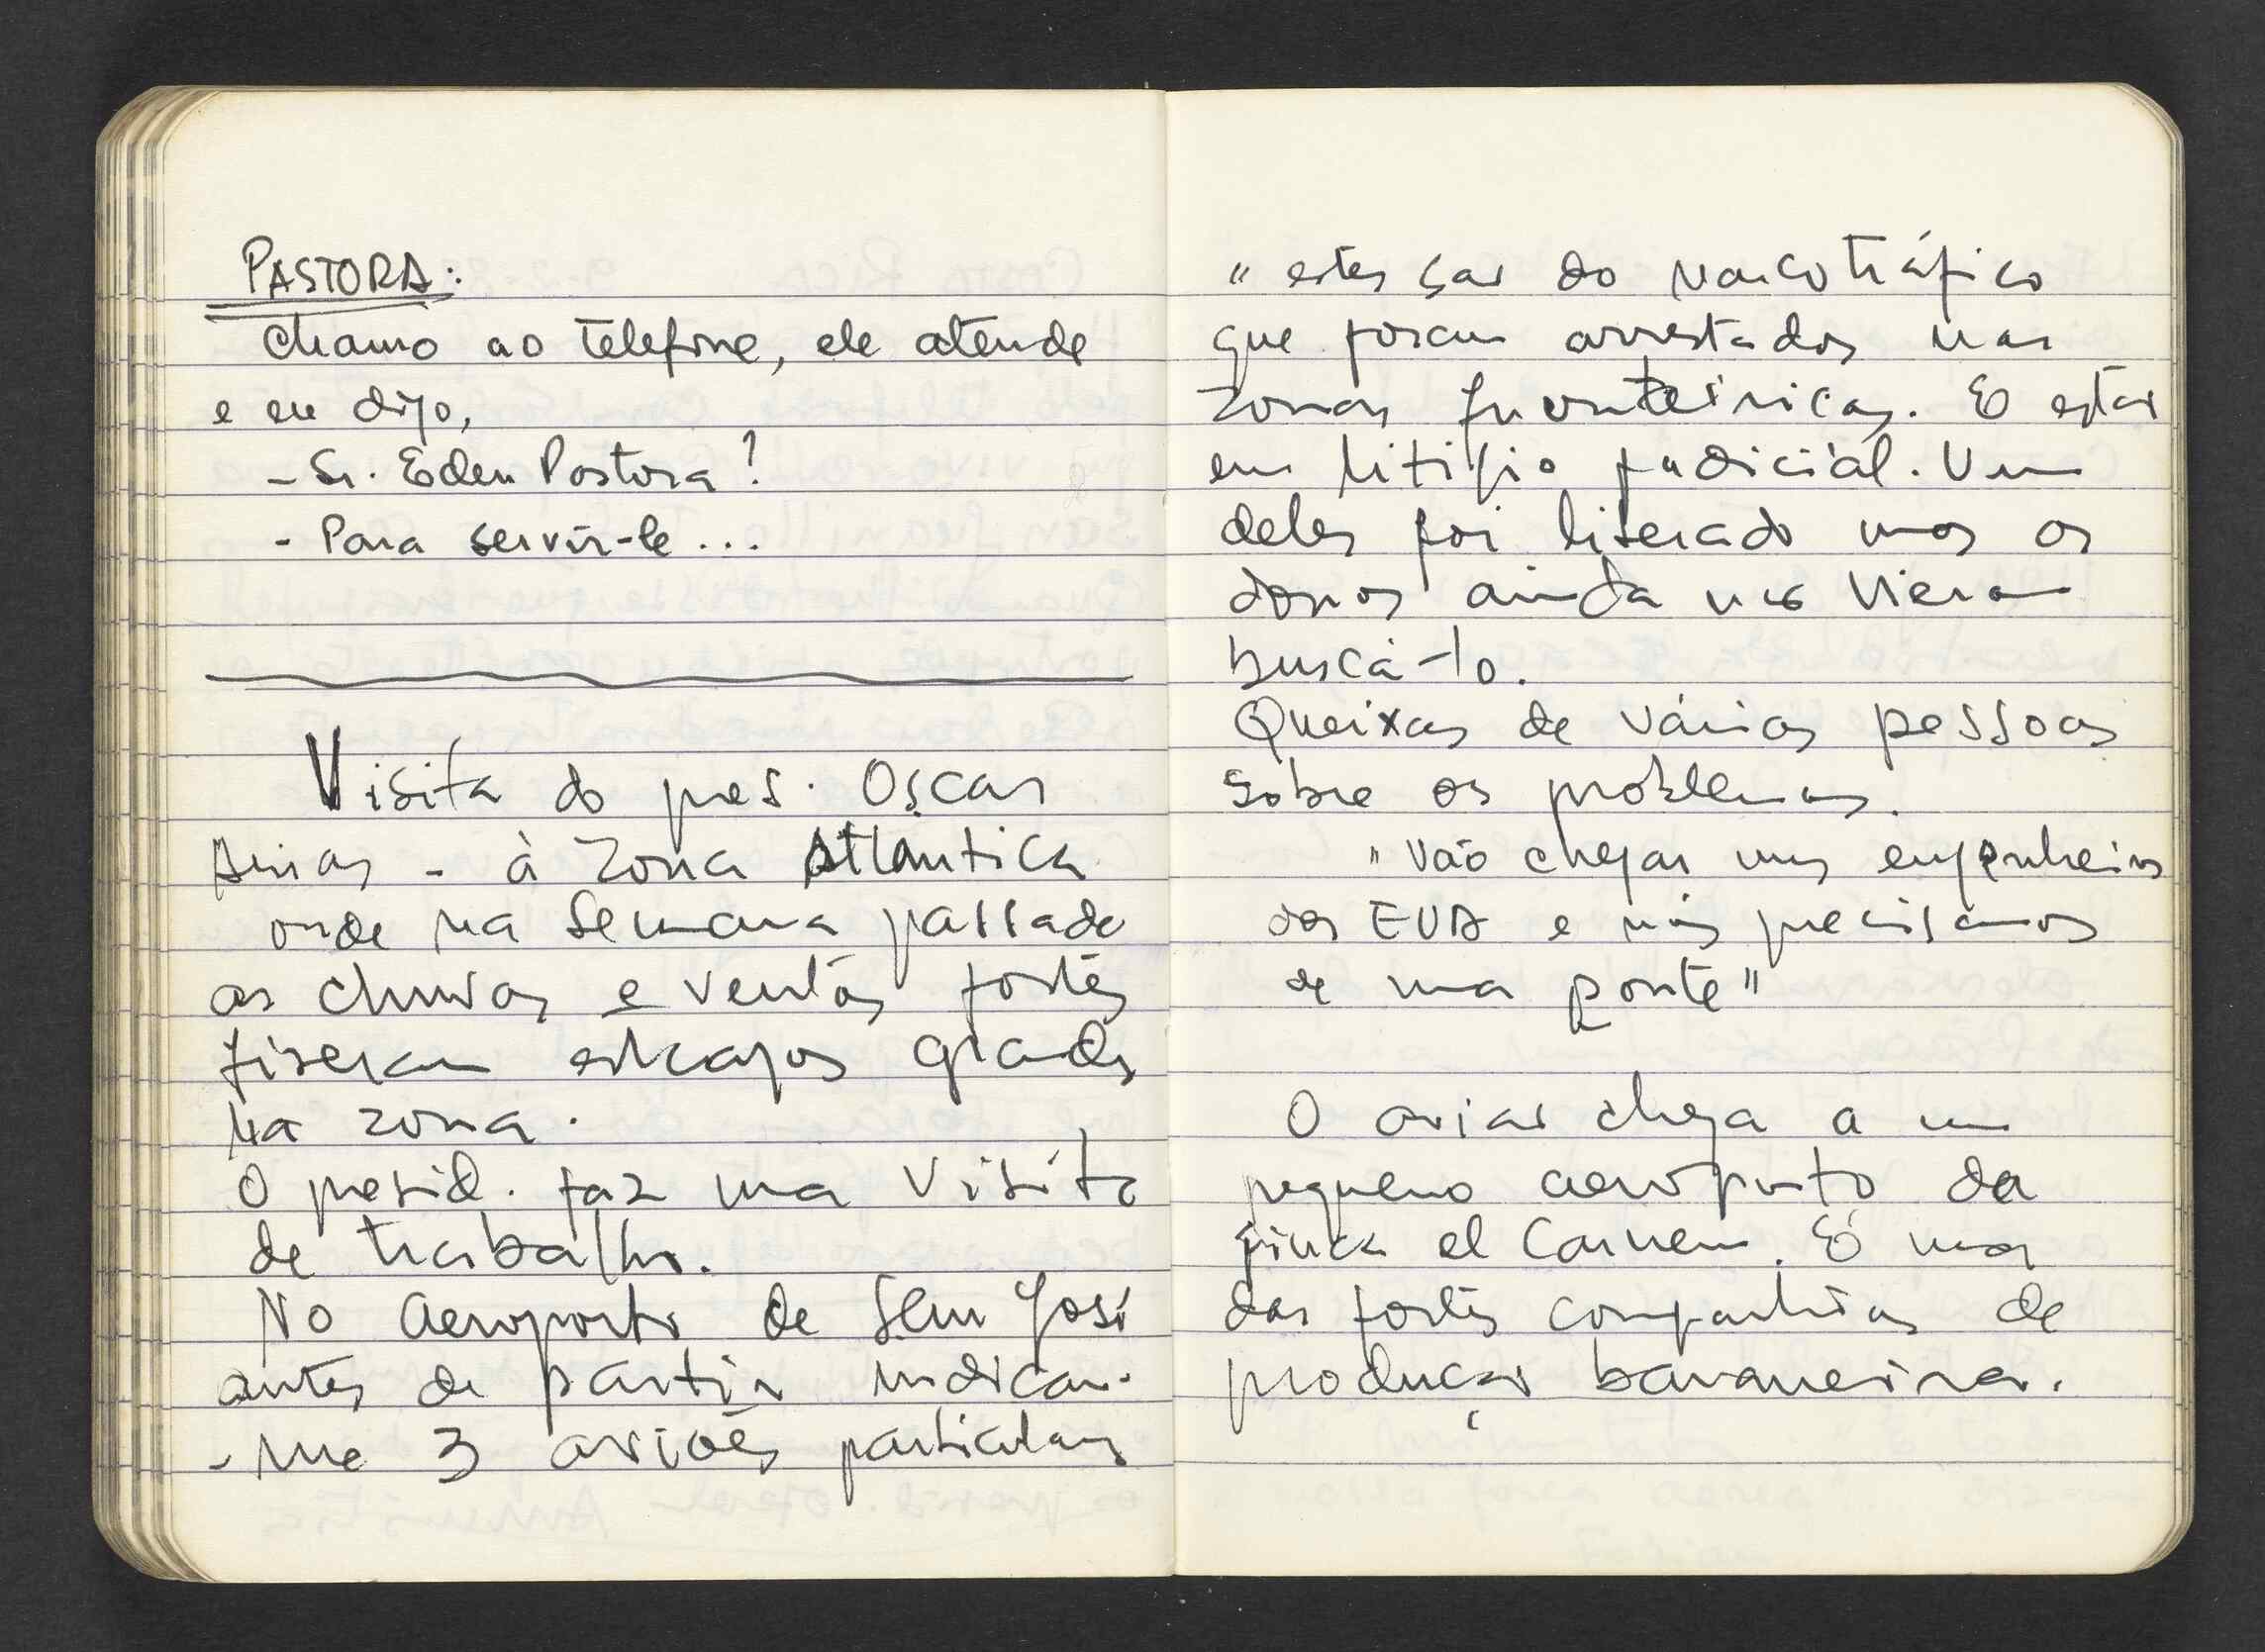 PASTORA:
chamo ao telefone, ele atende
e eu digo,
- Sr. Eden Pastora?
- Para servir-le...
Visita do pres. Oscar
Arias - à zona Atlântica
onde na semana passada
as chuvas e ventos fortes
fizeram estragos grandes
na zona.
O presid. faz uma visita
de trabalho.
No aeroporto de San José
antes de partir indicam-
-me 3 aviões particulares
" estes são do narcotráfico
que foram arrestados nas
zonas fronteiriças. E estão
em litígio judicial. Um
deles foi liberado mas os
donos ainda não vieram
buscá-lo.
Queixas de várias pessoas
sobre os problemas.
"Vão chegar uns engenheiros
dos EUA e nós precisamos
de uma ponte"
O avião chega a um
pequeno aeroporto da
finca el Carmen. É uma
das fortes companhias de
produção bananeira.